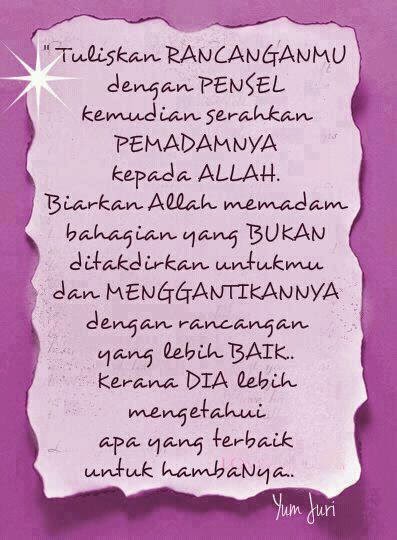 " Tuliskan RANCANGANMU
dengan PENSEL
kemudian serahkan
PEMADAMNYA
kepada ALLAH.
Biarkan Allah memadam
bahagian yang BUKAN
ditakdirkan untukmu
dan MENGGANTIKANNYA
dengan rancangan
yang lebih BAIK..
kerana DIA lebih
mengetahui
apa yang terbaik
untuk hambaNya..
Yum Juri